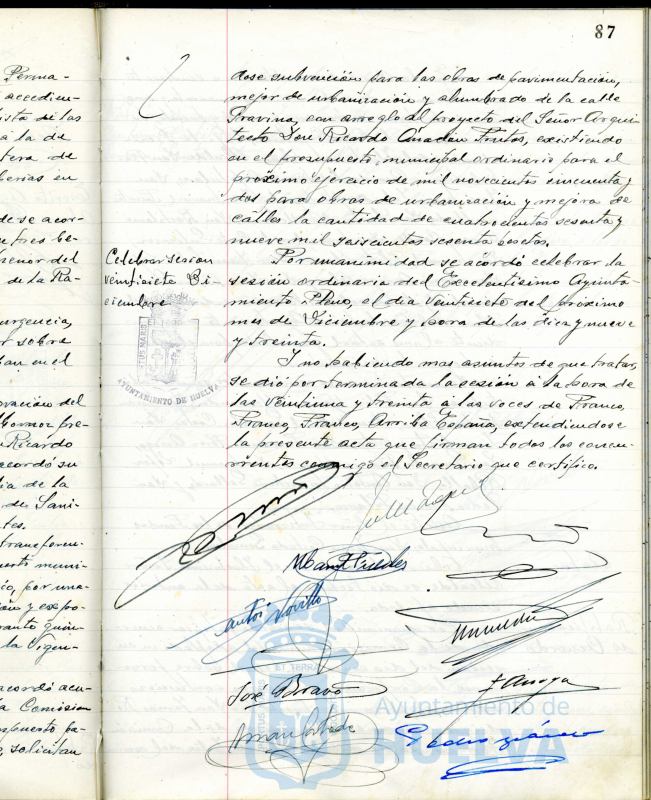 87
Perma-
accedien-
ista de las
a la de
tera de
berias en
de se acor-
tres be-
nenor del
de la Rá-
urgencia,
r sobre
ban en el
ovación del
Ricardo
acordó su
ia de la
de Sani-
tes.
transferen-
muni-
cio, por una-
y expo-
la Vigen-
acordó acu-
la Comisión
puesto pa-
solicitan
dose subvención para las obras de pavimentación,
mejor de urbanización y alumbrado de la calle
Fravina, con arreglo al proyecto del Señor Arqui-
tecto Don Ricardo Anadón Frutos, existiendo
en el presupuesto municipal ordinario para el
próximo ejercicio de mil novecientos cincuenta y
dos para obras de urbanización y mejora de
calles la cantidad de cuatrocientas sesenta y
nueve mil seiscientas sesenta pesetas.
Celebrar sesion
veintisiete Di-
ciembre
Por unanimidad se acordó celebrar la
sesión ordinaria del Excelentisimo Ayunta-
miento Pleno, el dia veintisiete del próximo
mes de Diciembre y hora de las diez y nueve
y treinta.
Y no habiendo mas asuntos de que tratar,
se dió por terminada la sesión á la hora de
las veintiuna y treinta á las voces de Franco,
Franco, Franco, Arriba España, extendiendose
la presente acta que firman todos los concu-
rrentes conmigo el Secretario que certifico.
AYUNTAMIENTO DE HUELVA
José Bravo
Ayuntamiento de
HUELVA